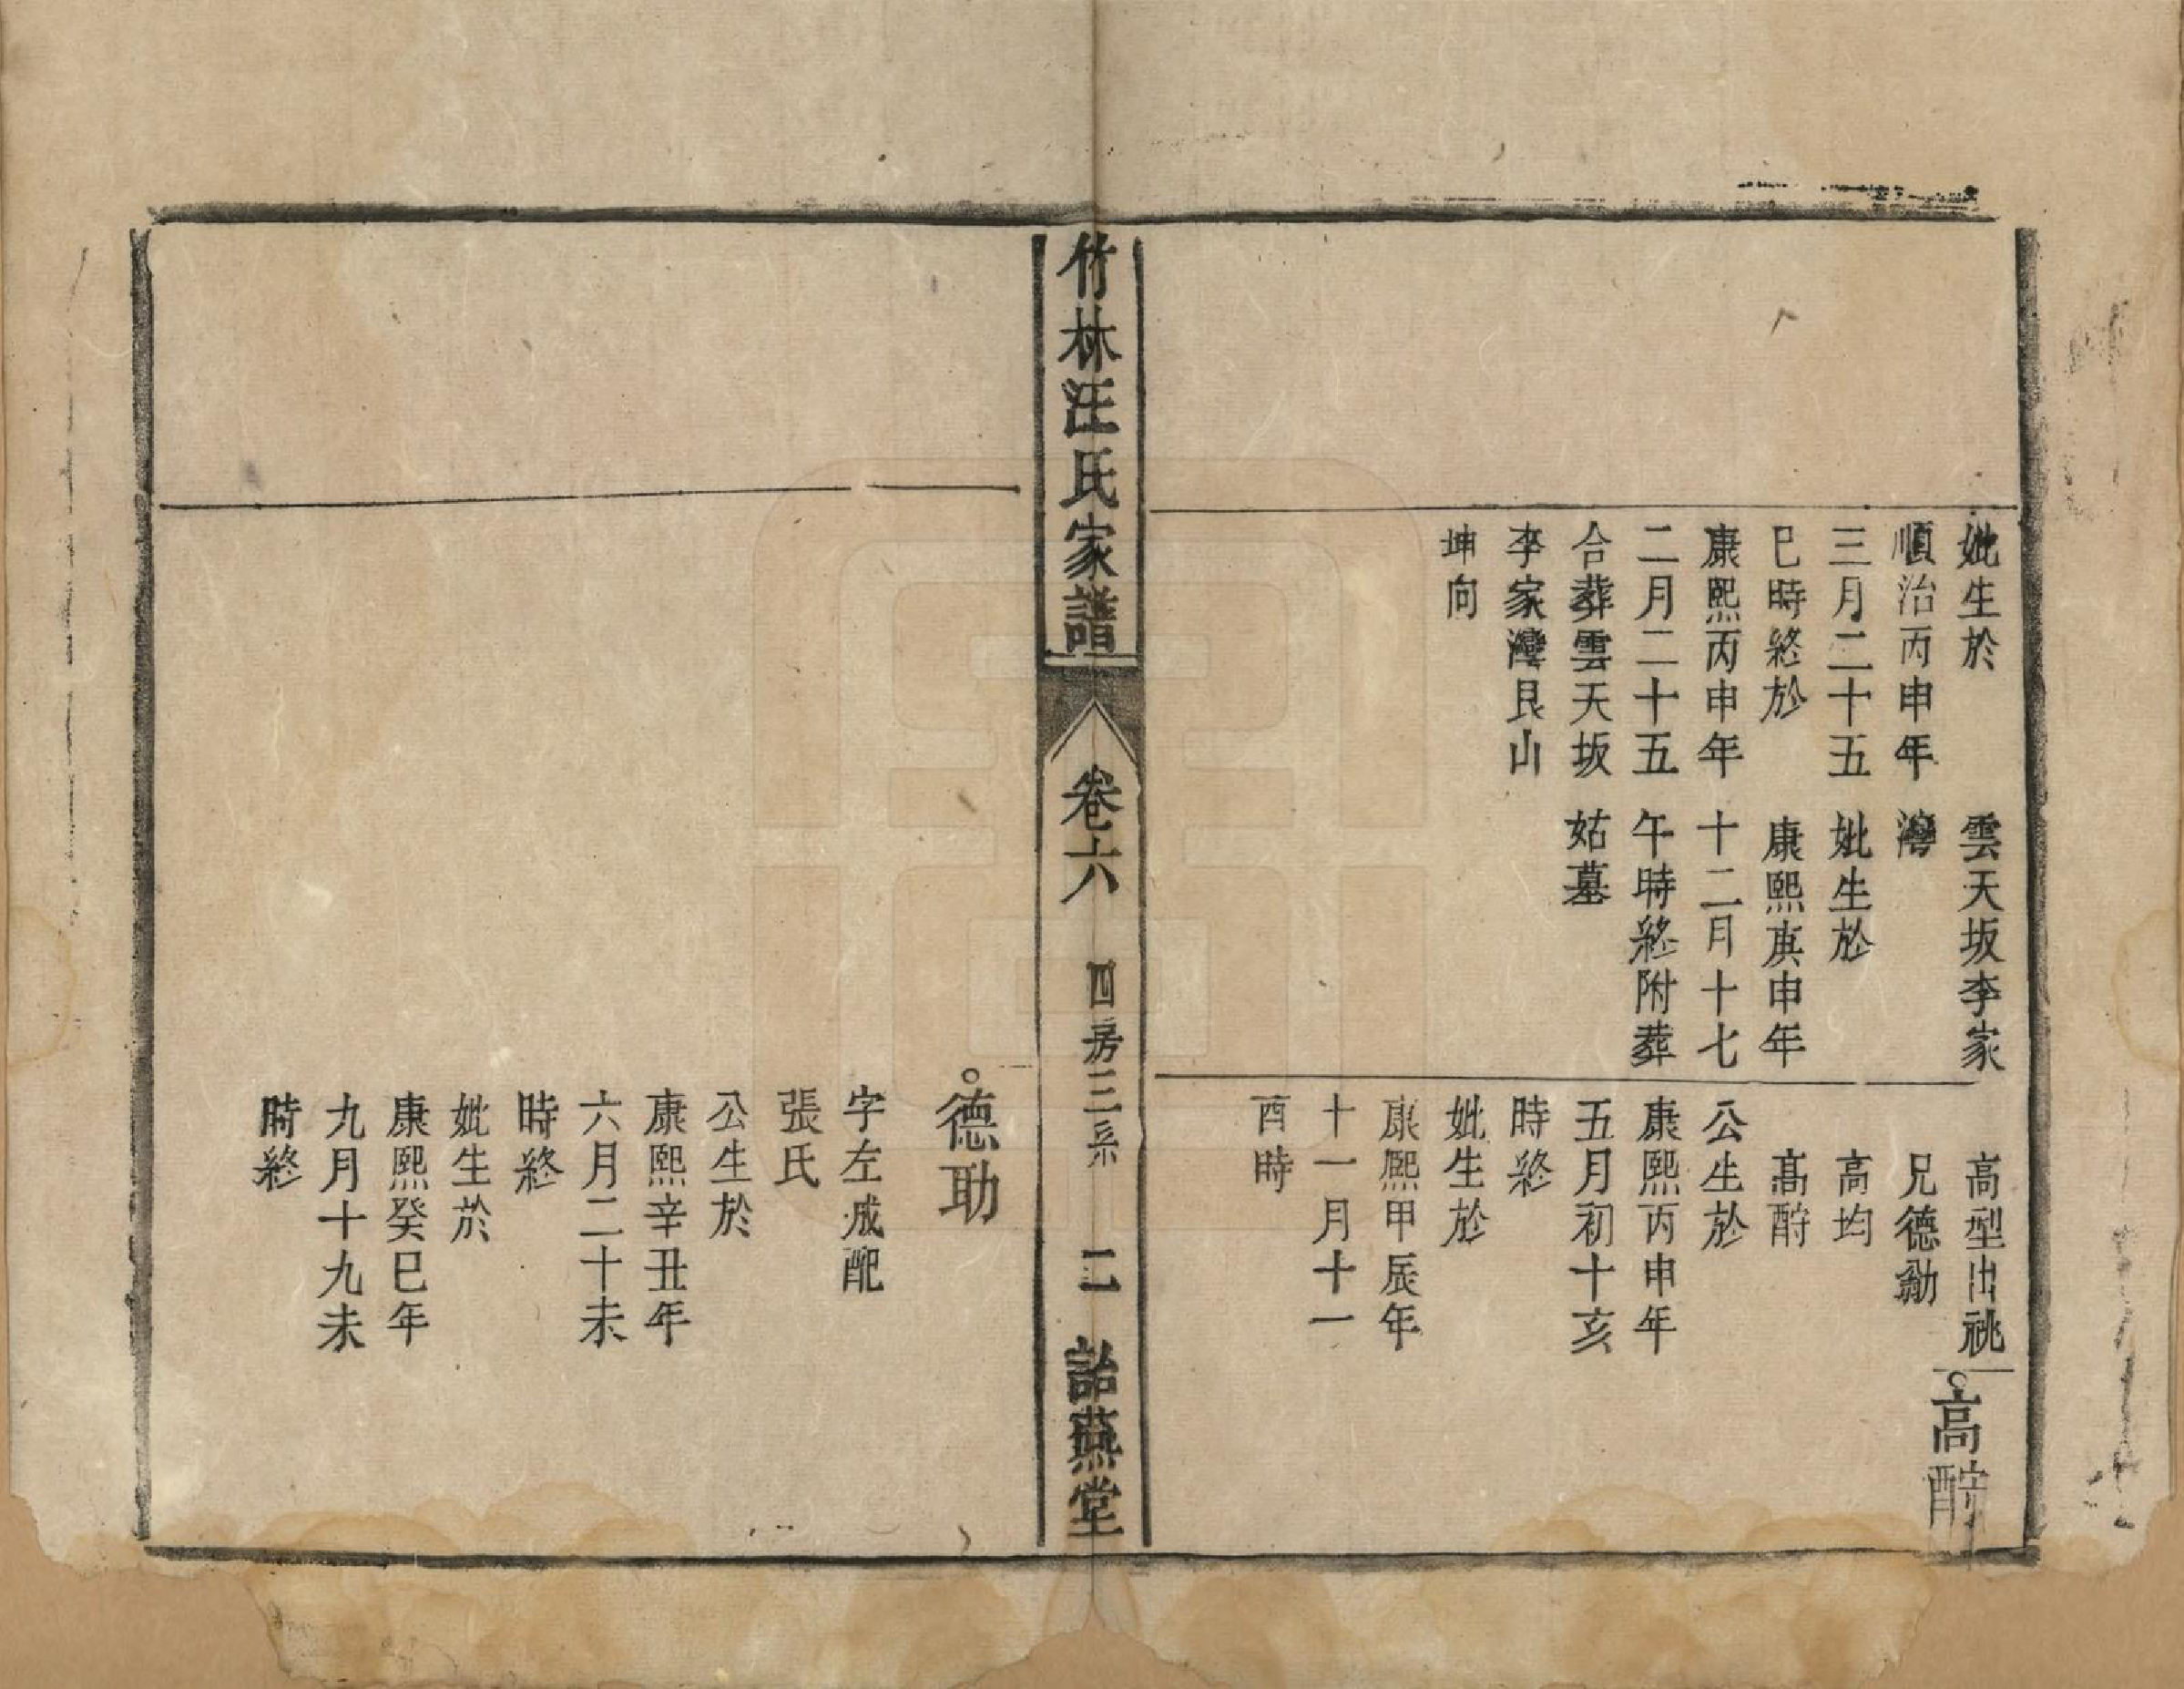 妣生於
順治丙申年
三月二十五
巳時終於
康熙丙申年
二月二十五
合葬雲天坂
李家灣艮山
坤向
雲天坂李家
灣
妣生於
康熙庚申年
十二月十七
午時終附葬
姑墓
高型出祧
兄德勷
高均
高酧
公生於
康熙丙申年
五月初十亥
時終
妣生於
康熙甲辰年
十一月十一
酉時
高酧
竹林汪氏家譜
卷六
四房三系
二
詒燕堂
德助
字左成配
張氏
公生於
康熙辛丑年
六月二十未
時終
妣生於
康熙癸巳年
九月十九未
時終